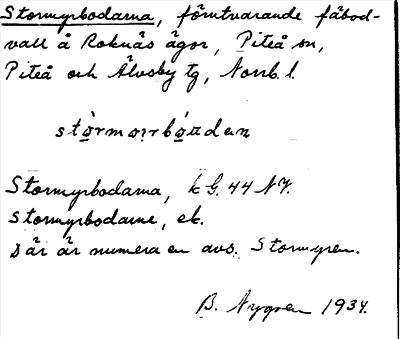 Stormyrbodarna, förutvarande fäbod-
vall å Roknäs ägor, Piteå sn,
Piteå och Älvsby tg, Norrb. l.
Stormyrbodarna, k G. 44 NV.
Stormyrbodarne, ek.
där är numera en avs. Stormyren.
B. Nygren 1934.